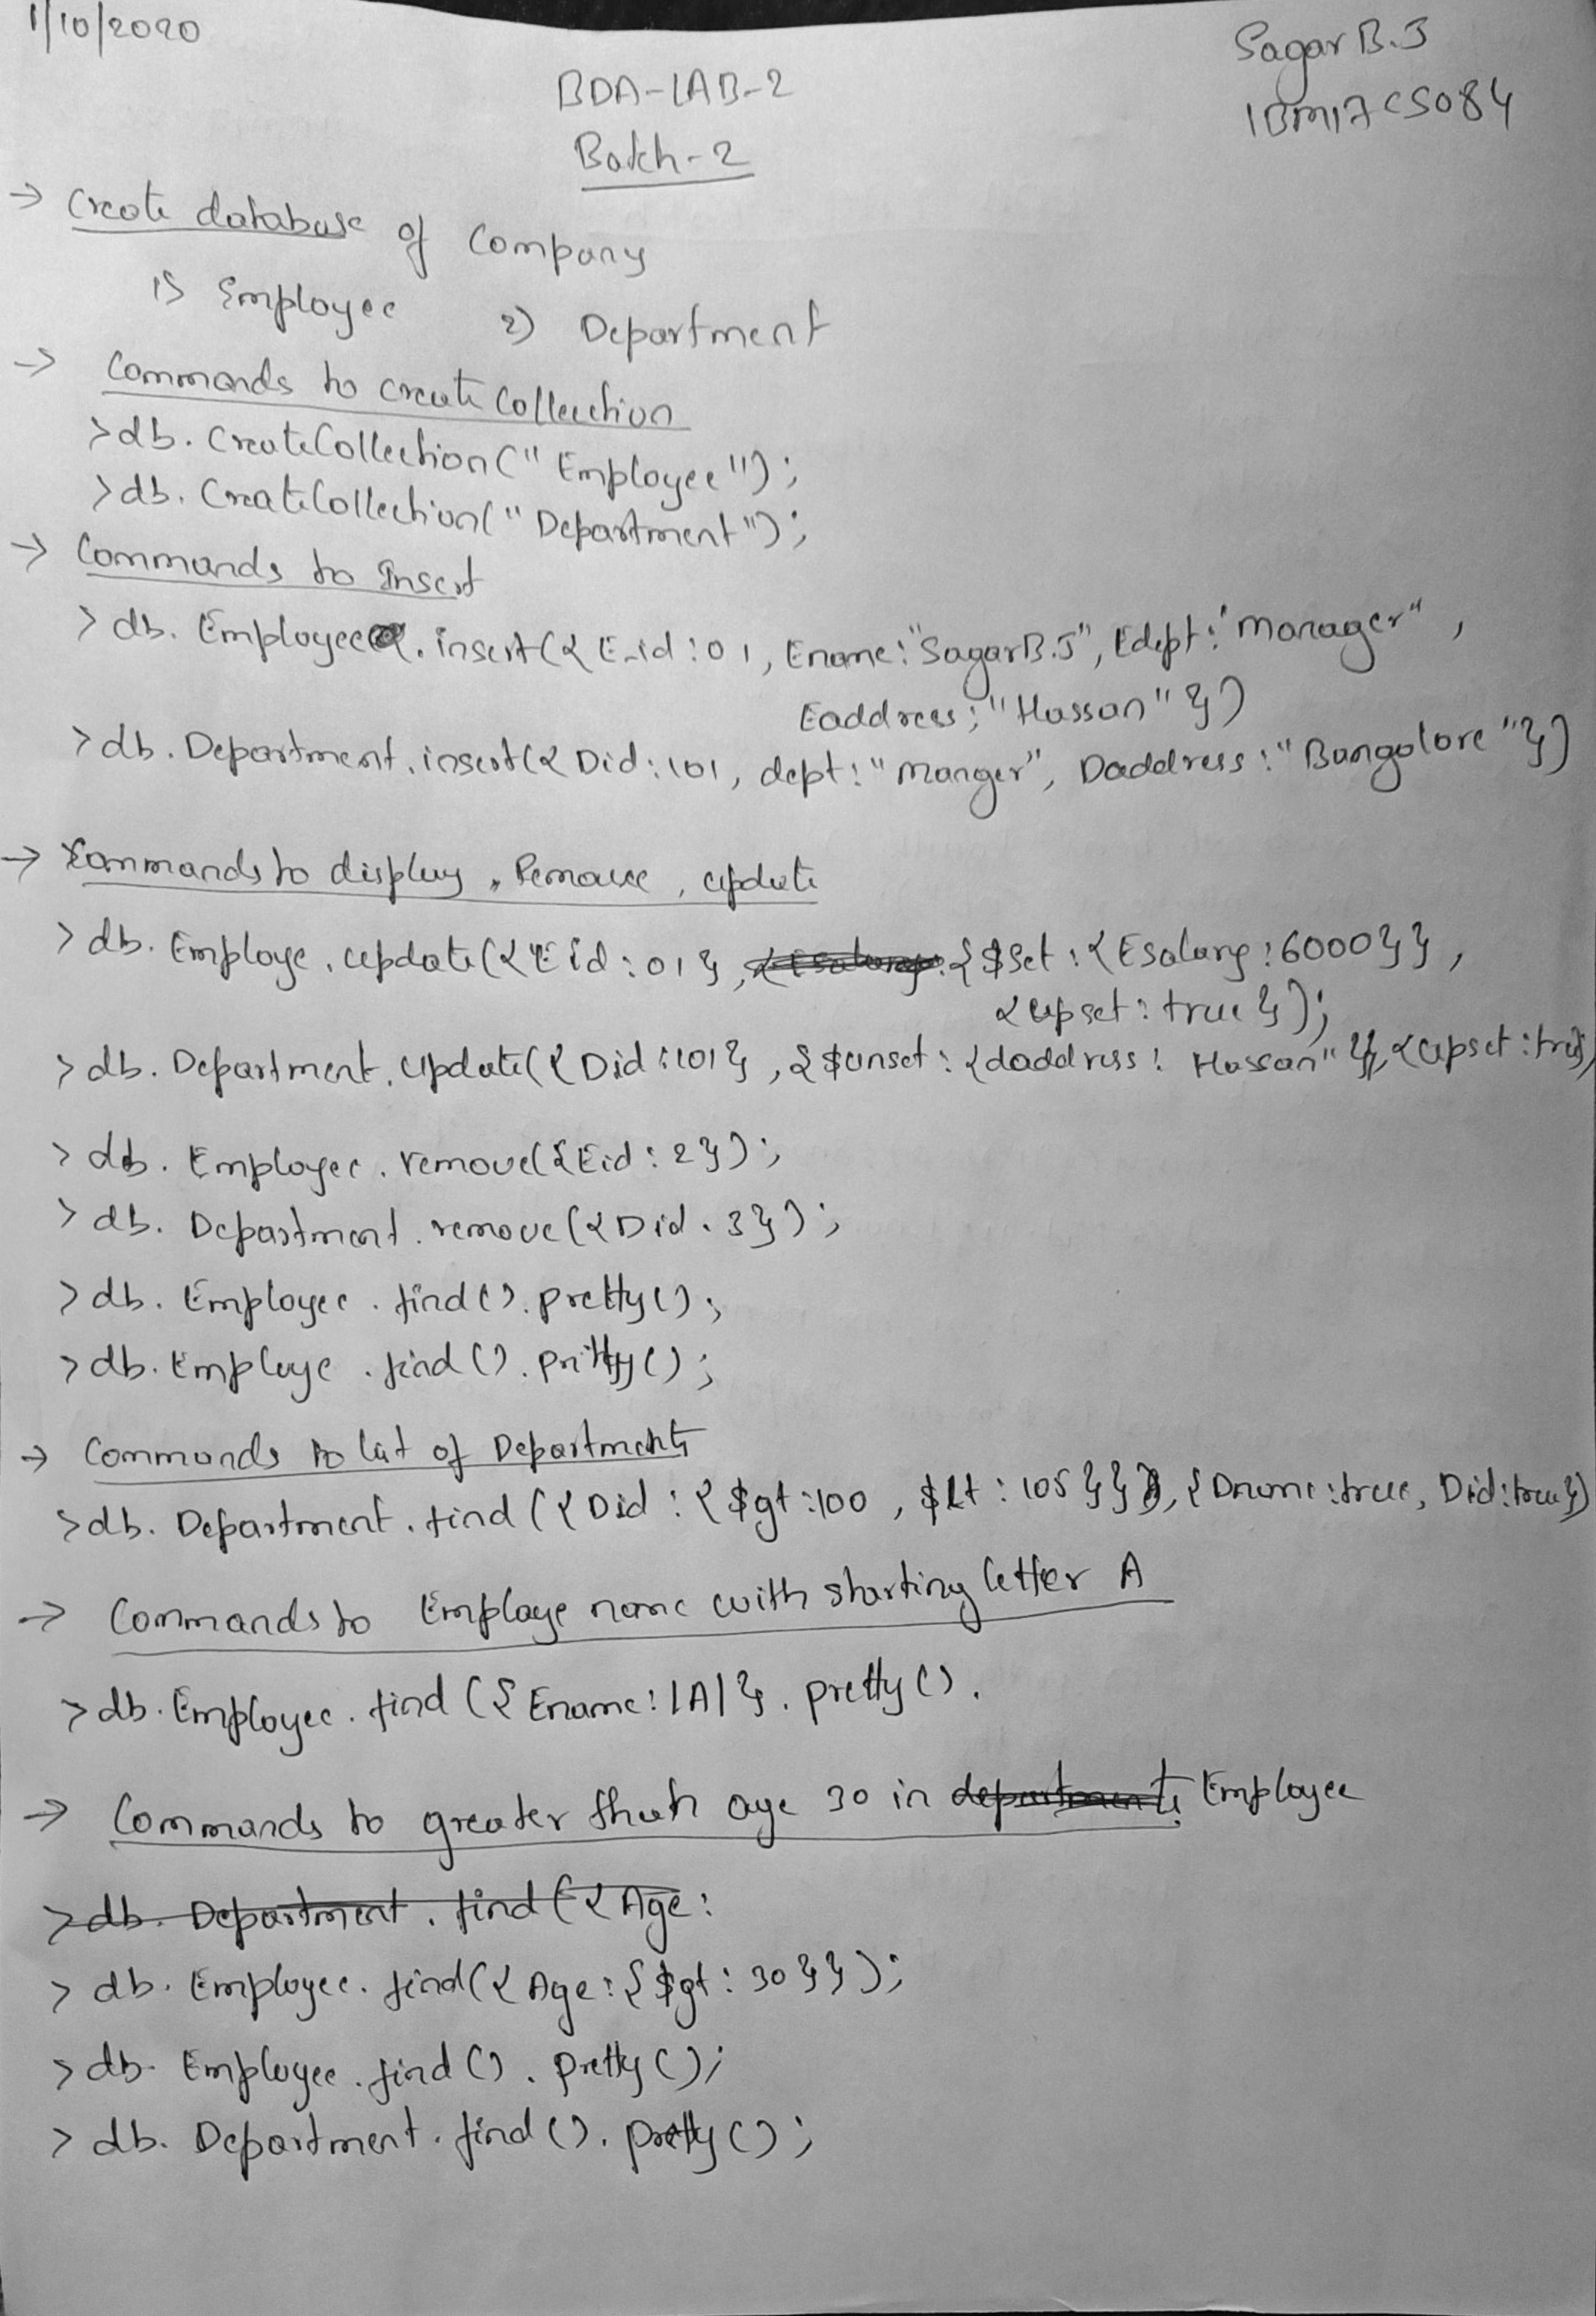 1/10/2020
Sagar B.J
1BM17CS084
BDA-LAB-2
Batch-2
→ Create database of Company
1) Employee 2) Department
→ Commands to create Collection
>db.CreateCollection("Employee");
>db.CreateCollection("Department");
→ Commands to Insert
> db.Employee.insert({Eid:01, Ename:"SagarB.J", Edept:"manager",
Eaddress:"Hassan"})
> db.Department.insert({Did:101, dept:"Manger", Daddress:"Bangalore"})
→ Commands to display, Remove, update
> db.Employe.update({Eid:01}, {$Set:{Esalary:6000}},
{upset:true});
> db.Department.update({Did:101}, {$unset:{daddress: Hassan"}},{upset:true})
> db.Employee.remove({Eid:2});
> db.Department.remove({Did.3});
> db.Employee.find().pretty();
> db.Employe.find().pritty();
→ Commands to list of Departments
>db.Department.find({Did:{$gt:100, $Lt:105}}, {Dname:true, Did:true})
→ Commands to Employe name with starting letter A
>db.Employee.find({Ename:/A/}.pretty().
→ Commands to greater than age 30 in departments Employee
>db.Department.find({Age:
> db.Employee.find({Age:{$gt:30}});
> db.Employee.find().pretty();
> db.Department.find().pretty();